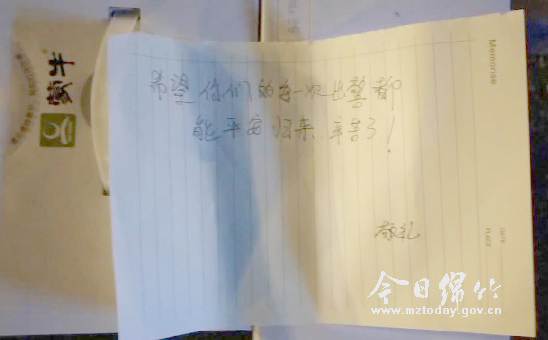 希望你们的每一次出警都
能平安归来，辛苦了！
敬礼
Memorise
DATE
PLACE
蒙牛
今日绵竹
www.mztoday.gov.cn